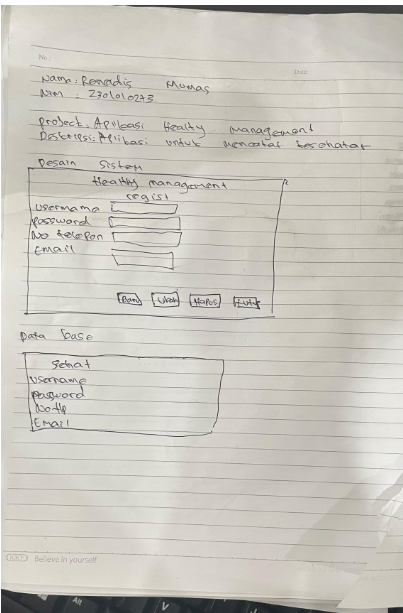 No :
Date
Nama : Renadis Mumas
Nim : 2301010273
Project : Aplibasi Healty management
Deskripsi : Aplibasi untuk mencatat kesehatan
Desain Sistem
Healthy management
regist
Username
Password
No telepon
Email
Baru Ubah Hapus
Data base
Sehat
Username
Password
No Hp
Email
Believe in yourself